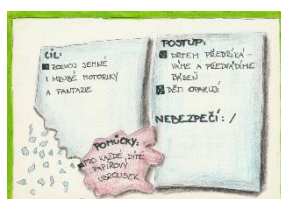 CÍL:
ROZVOJ JEMNÉ
I HRUBÉ MOTORIKY
A FANTAZIE
POSTUP:
DĚTEM PŘEDŘÍKÁ-
VÁME A PŘEDVÁDÍME
BÁSEŇ
DĚTI OPAKUJÍ
NEBEZPEČÍ: /
POMŮCKY:
PRO KAŽDÉ DÍTĚ
PAPÍROVÝ
UBROUSEK